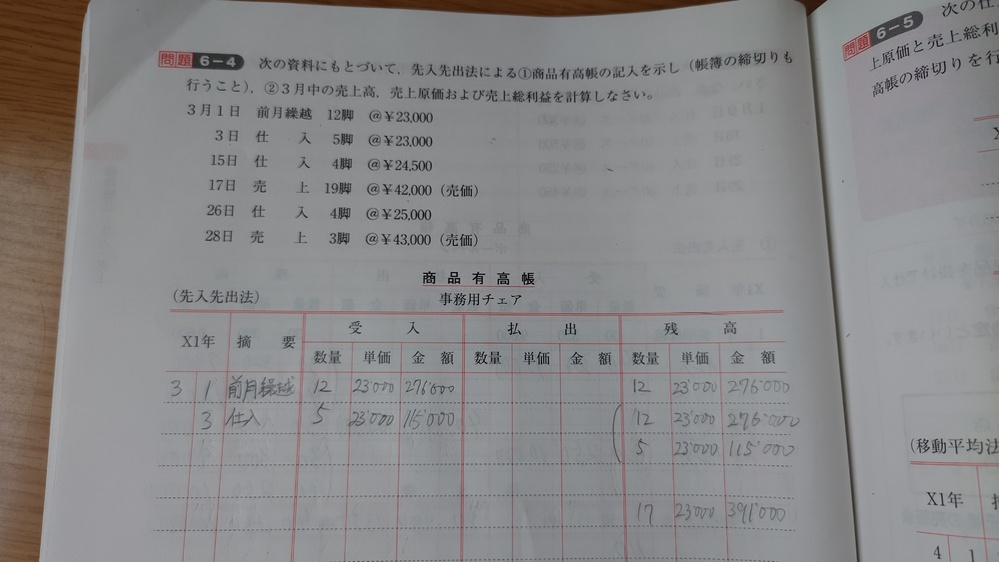 問題 6-4 次の資料にもとづいて，先入先出法による①商品有高帳の記入を示し（帳簿の締切りも
行うこと），②３月中の売上高，売上原価および売上総利益を計算しなさい。
３月１日 前月繰越 12脚 ＠￥23,000
３日 仕 入 5脚 ＠￥23,000
15日 仕 入 4脚 ＠￥24,500
17日 売 上 19脚 ＠￥42,000（売価）
26日 仕 入 4脚 ＠￥25,000
28日 売 上 3脚 ＠￥43,000（売価）
商 品 有 高 帳
（先入先出法） 事務用チェア
X1年 摘 要 受 入 払 出 残 高
数量 単価 金 額 数量 単価 金 額 数量 単価 金 額
3 1 前月繰越 12 23'000 276'000 12 23'000 276'000
3 仕入 5 23'000 115'000 12 23'000 276'000
5 23'000 115'000
17 23'000 391'000
問題 6-5 次の仕
上原価と売上総利
高帳の締切りを行
（移動平均法
X1年
4 1